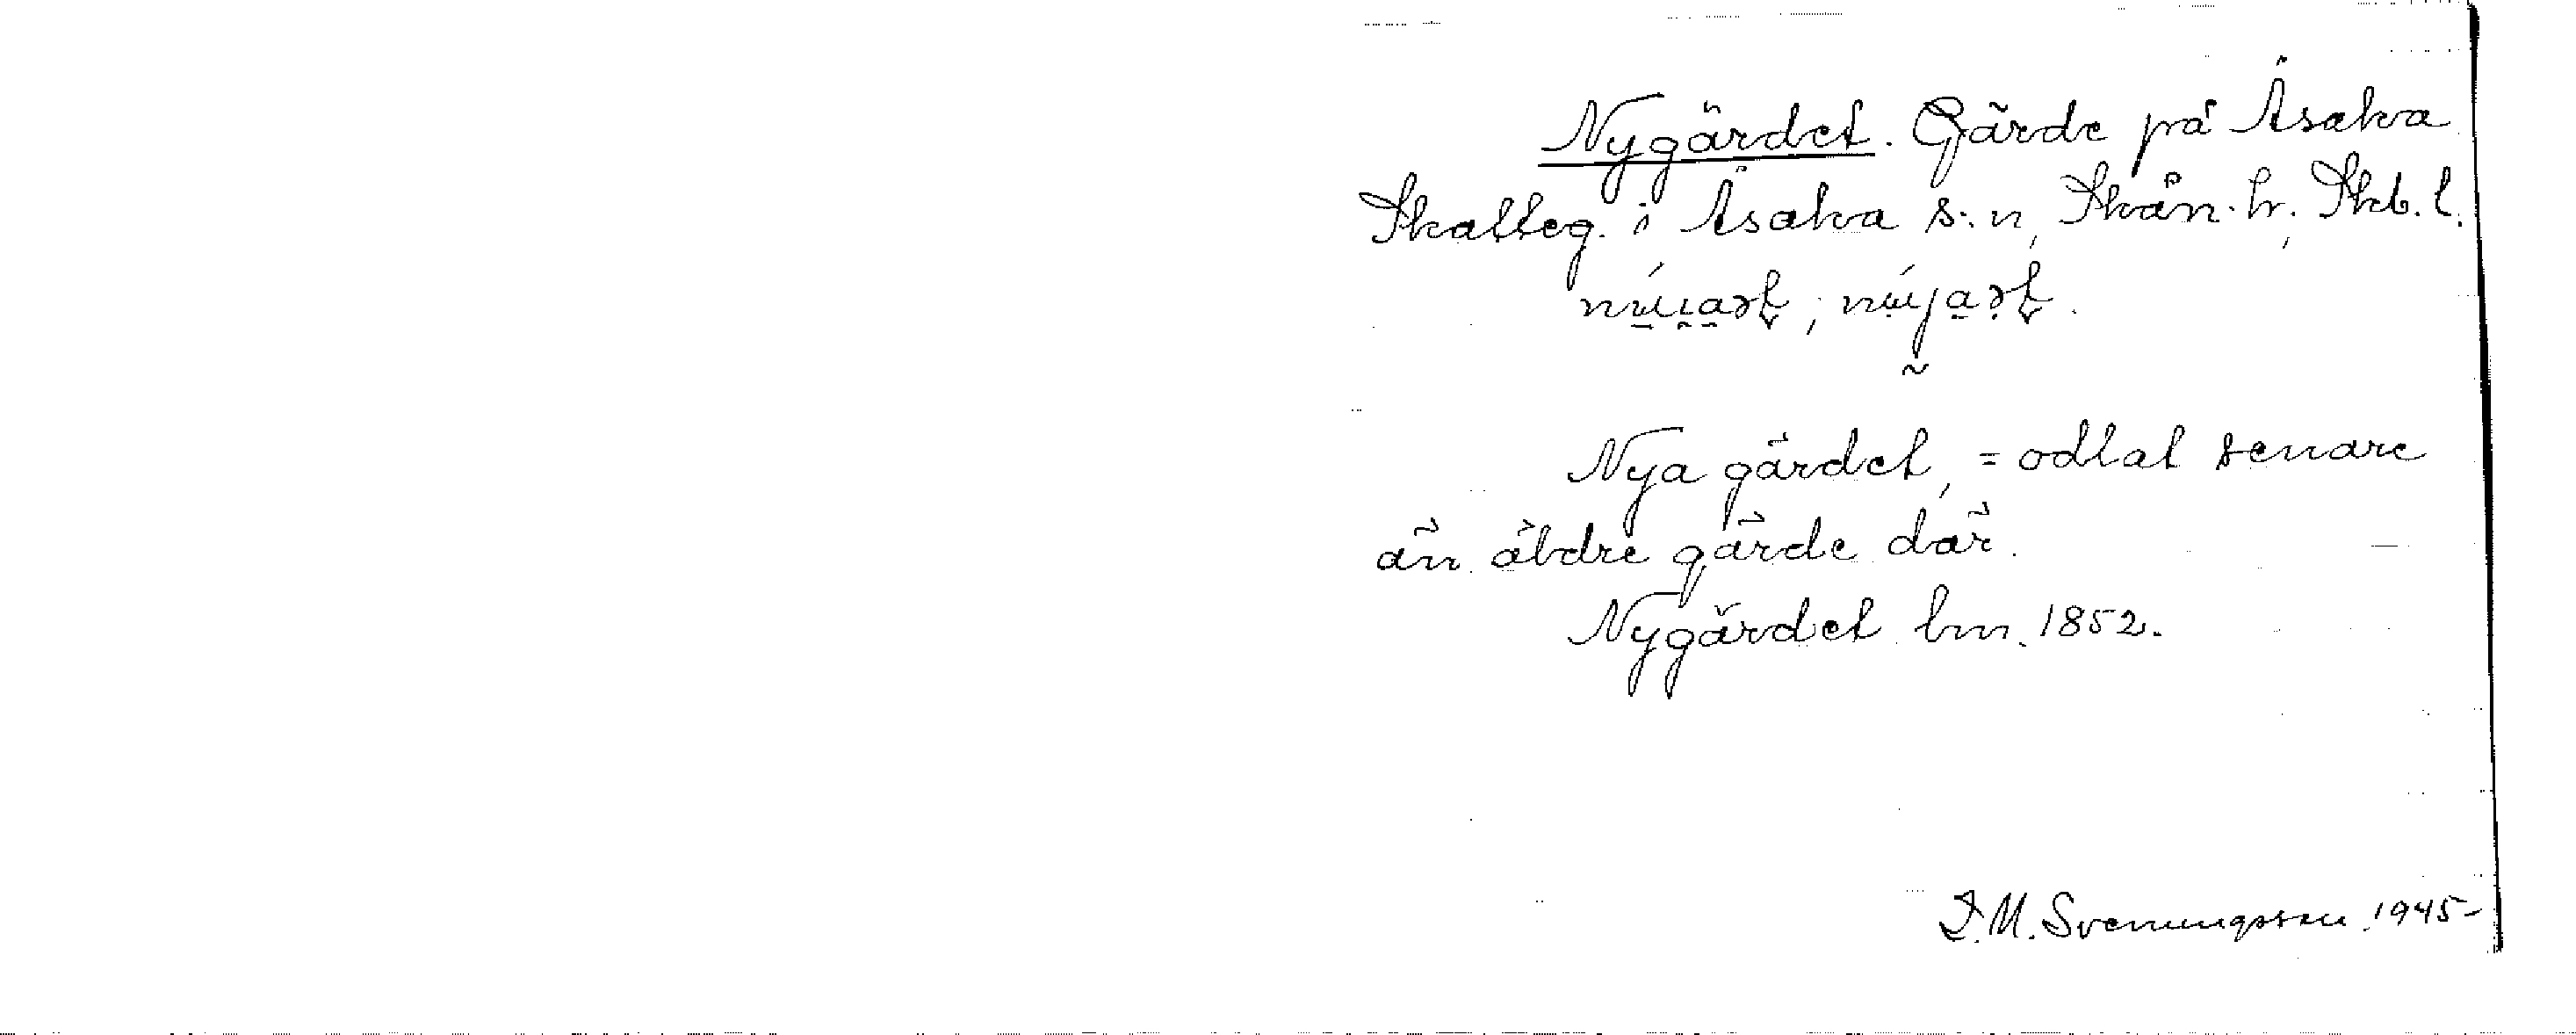 Nygärdet. Gärde på Åsaka
Skatteg. i Åsaka s:n, Skån. h., Skb. l.
Nya gärdet, = odlat senare
än äldre gärde där.
Nygärdet lm. 1852.
D. M. Svenungsson 1945-